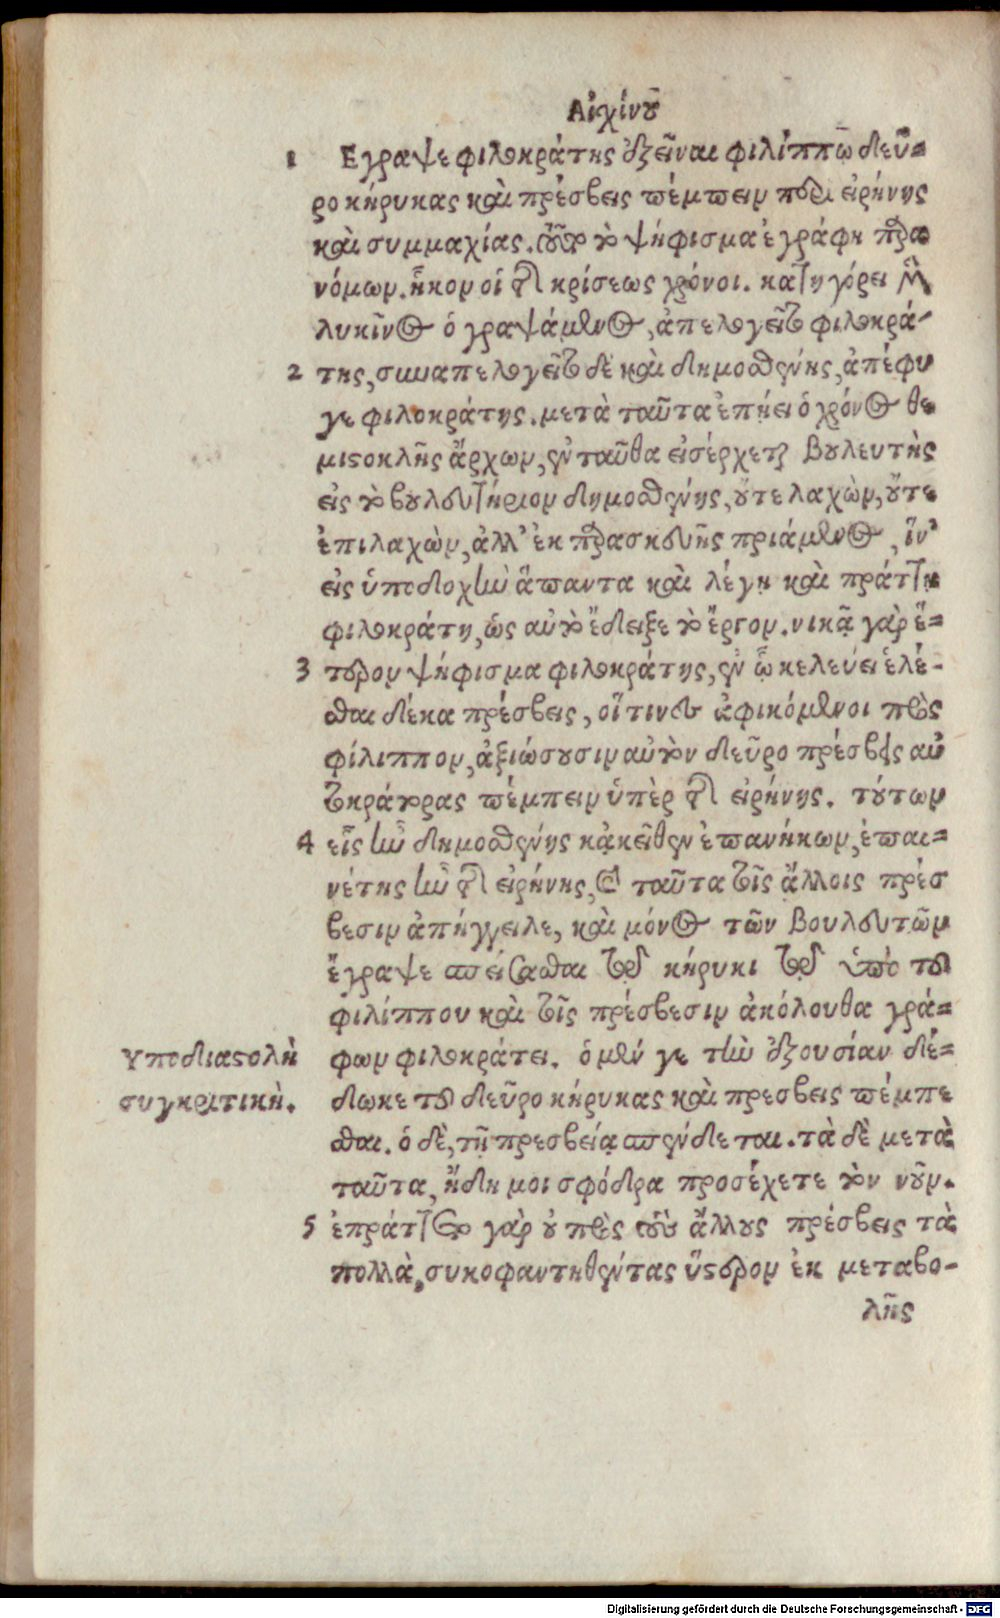 Αἰσχίνου
1 Εγραψε φιλοκράτης ἐξεῖναι φιλίππῳ δεῦ=
ρο κήρυκας καὶ πρέσβεις πέμπειν περὶ εἰρήνης
καὶ συμμαχίας. τοῦτο τὸ ψήφισμα ἐγράφη παρα
νόμων. ἧκον οἱ τῆς κρίσεως χρόνοι. κατηγόρει μὲν
λυκῖνος ὁ γραψάμενος, ἀπελογεῖτο φιλοκρά-
2 της, συναπελογεῖτο δὲ καὶ δημοσθένης, ἀπέφυ
γε φιλοκράτης. μετὰ ταῦτα ἐπῄει ὁ χρόνος θε
μιστοκλῆς ἄρχων, ἐνταῦθα εἰσέρχεται βουλευτὴς
εἰς τὸ βουλευτήριον δημοσθένης, οὔτε λαχὼν, οὔτε
ἐπιλαχὼν, ἀλλ' ἐκ παρασκευῆς πριάμενος, ἵν'
εἰς ὑποδοχὴν ἅπαντα καὶ λέγῃ καὶ πράττῃ
φιλοκράτῃ, ὡς αὐτὸ ἔδειξε τὸ ἔργον. νικᾷ γὰρ ἕ=
3 τερον ψήφισμα φιλοκράτης, ἐν ᾧ κελεύει ἑλέ-
σθαι δέκα πρέσβεις, οἵτινες ἀφικόμενοι πρὸς
φίλιππον, ἀξιώσουσιν αὐτὸν δεῦρο πρέσβεις αὐ
τοκράτορας πέμπειν ὑπὲρ τῆς εἰρήνης. τούτων
4 εἷς ἦν δημοσθένης κἀκεῖθεν ἐπανήκων, ἐπαι=
νέτης ἦν τῆς εἰρήνης, καὶ ταῦτα τοῖς ἄλλοις πρέσ
βεσιν ἀπήγγειλε, καὶ μόνος τῶν βουλευτῶν
ἔγραψε σπείσασθαι τῷ κήρυκι τῷ ὑπὸ τοῦ
φιλίππου καὶ τοῖς πρέσβεσιν ἀκόλουθα γρά=
Υποδιαστολὴ
συγκριτικὴ.
φων φιλοκράτει. ὁ μέν γε τὴν ἐξουσίαν δέ=
δωκε τοῦ δεῦρο κήρυκας καὶ πρεσβεις πέμπε
σθαι. ὁ δὲ, τῇ πρεσβείᾳ σπένδεται. τὰ δὲ μετὰ
ταῦτα, ἤδη μοι σφόδρα προσέχετε τὸν νοῦν.
5 ἐπράττετο γὰρ οὐ πρὸς τοὺς ἄλλους πρέσβεις τὰ
πολλὰ, συκοφαντηθέντας ὕστερον ἐκ μεταβο-
λῆς
Digitalisierung gefördert durch die Deutsche Forschungsgemeinschaft - DFG